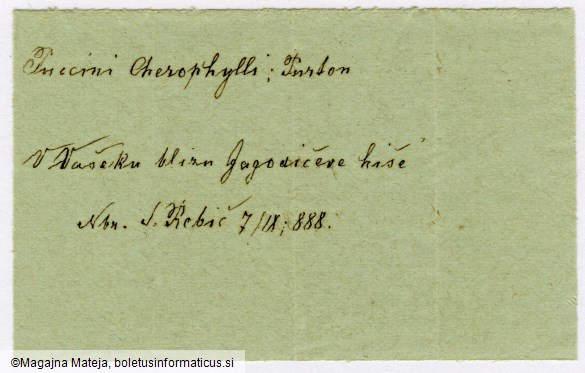 Puccini Cherophylli; Purton
V Vašeku blizu Jagodičeve hiše
Nbr. S. Robič 7/IX; 888.
©Magajna Mateja, boletusinformaticus.si